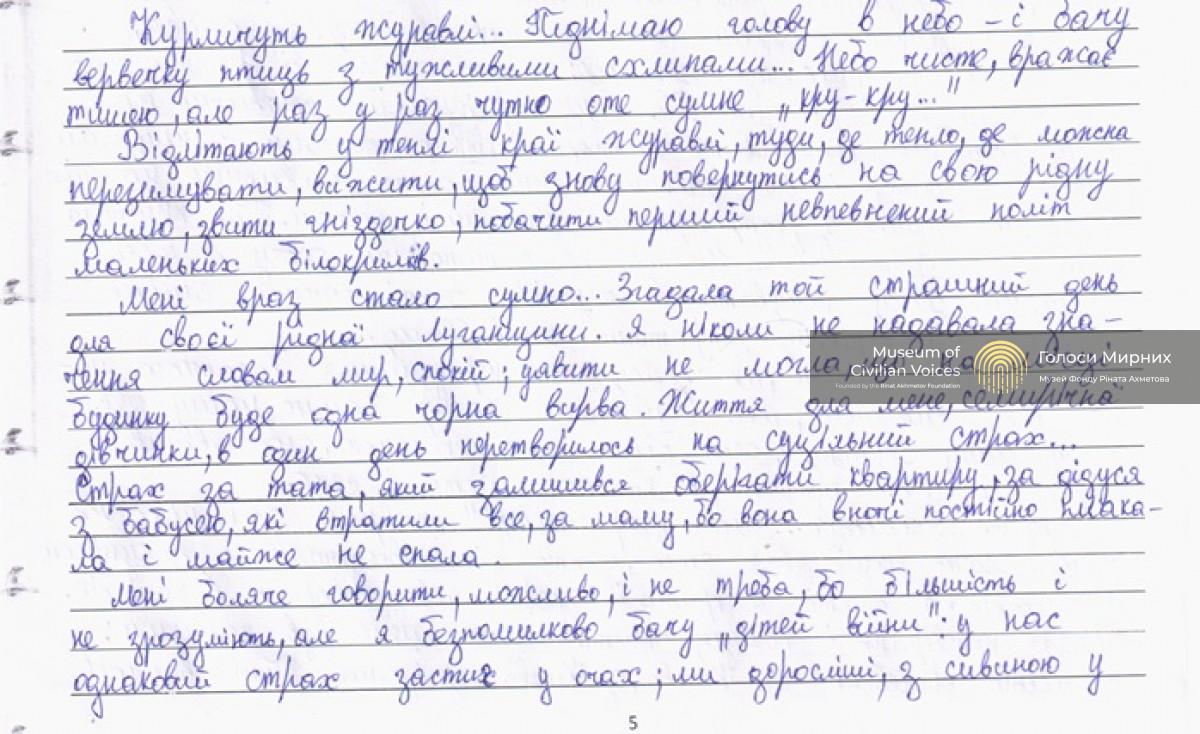 Курличуть журавлі... Піднімаю голову в небо – і бачу
вервечку птиць з тужливими схлипами... Небо чисте, вражає
тишею, але раз у раз чутно оте сумне „кру-кру..."
Відлітають у теплі краї журавлі, туди, де тепло, де можна
перезимувати, вижити, щоб знову повернутись на свою рідну
землю, звити гніздечко, побачити перший невпевнений політ
маленьких білокрилів.
Мені враз стало сумно... Згадала той страшний день
для своєї рідної Луганщини. Я ніколи не надавала зна-
чення словам мир, спокій; уявити не могла, що на місці
будинку буде одна чорна вирва. Життя для мене, семирічної
дівчинки, в один день перетворилось на суцільний страх...
Страх за тата, який залишився оберігати квартиру, за дідуся
з бабусею, які втратили все, за маму, бо вона вночі постійно плака-
ла і майже не спала.
Мені боляче говорити, можливо, і не треба, бо більшість і
не зрозуміють, але я безпомилково бачу „дітей війни": у нас
однаковий страх застиг у очах; ми доросліші, з сивиною у
5
Museum of
Civilian Voices
Founded by the Rinat Akhmetov Foundation
Голоси Мирних
Музей Фонду Ріната Ахметова